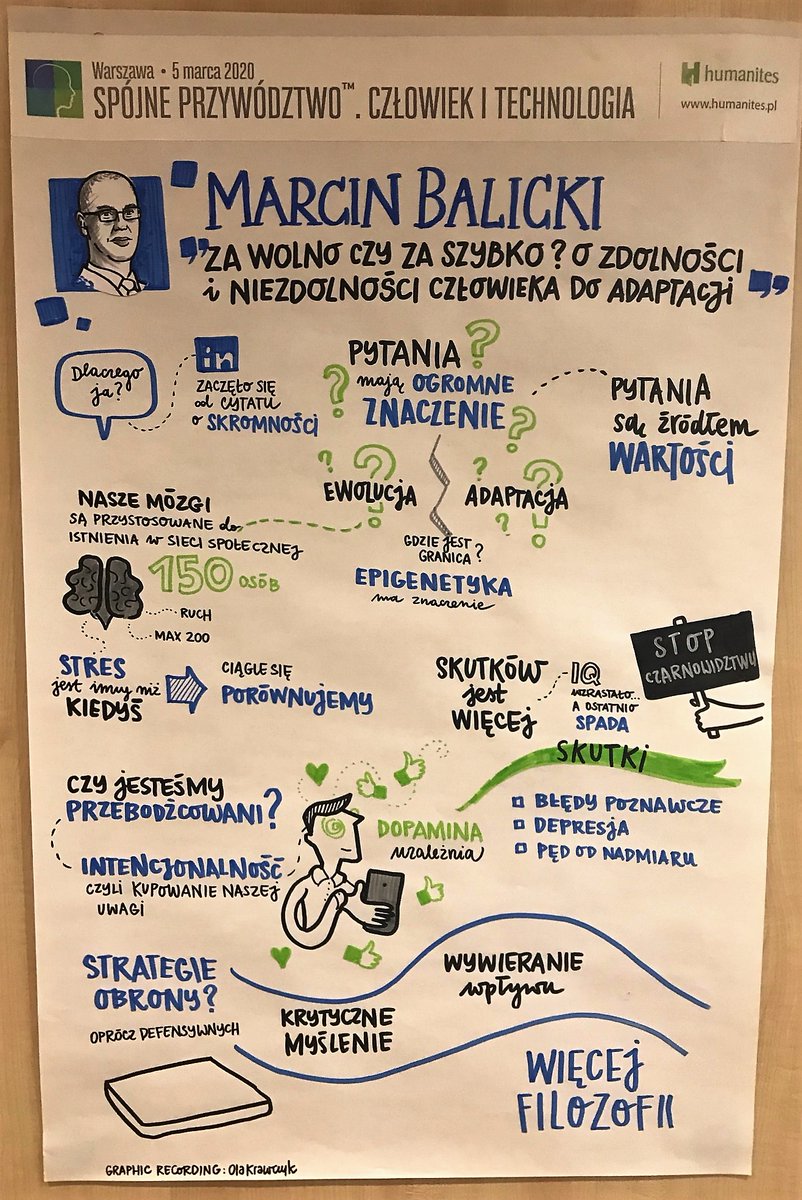 Warszawa • 5 marca 2020
SPÓJNE PRZYWÓDZTWO™. CZŁOWIEK I TECHNOLOGIA
humanites
www.humanites.pl
MARCIN BALICKI
"ZA WOLNO CZY ZA SZYBKO? O ZDOLNOŚCI
i NIEZDOLNOŚCI CZŁOWIEKA DO ADAPTACJI"
Dlaczego
ja?
in
ZACZĘŁO SIĘ
od CYTATU
o SKROMNOŚCI
PYTANIA
mają OGROMNE
ZNACZENIE
PYTANIA
są źródłem
WARTOŚCI
EWOLUCJA
ADAPTACJA
GDZIE JEST
GRANICA?
EPIGENETYKA
ma znaczenie
NASZE MÓZGI
SĄ PRZYSTOSOWANE do
ISTNIENIA w SIECI SPOŁECZNEJ
150 OSÓB
RUCH
MAX 200
STRES
jest inny niż
KIEDYŚ
CIĄGLE SIĘ
PORÓWNUJEMY
SKUTKÓW
jest
WIĘCEJ
IQ
WZRASTAŁO...
A OSTATNIO
SPADA
STOP
CZARNOWIDZTWU
SKUTKI
BŁĘDY POZNAWCZE
DEPRESJA
PĘD OD NADMIARU
CZY JESTEŚMY
PRZEBODŹCOWANI?
INTENCJONALNOŚĆ
CZYLI KUPOWANIE NASZEJ
UWAGI
DOPAMINA
uzależnia
STRATEGIE
OBRONY?
OPRÓCZ DEFENSYWNYCH
KRYTYCZNE
MYŚLENIE
WYWIERANIE
wpływu
WIĘCEJ
FILOZOFII
GRAPHIC RECORDING: Ola Krawczyk